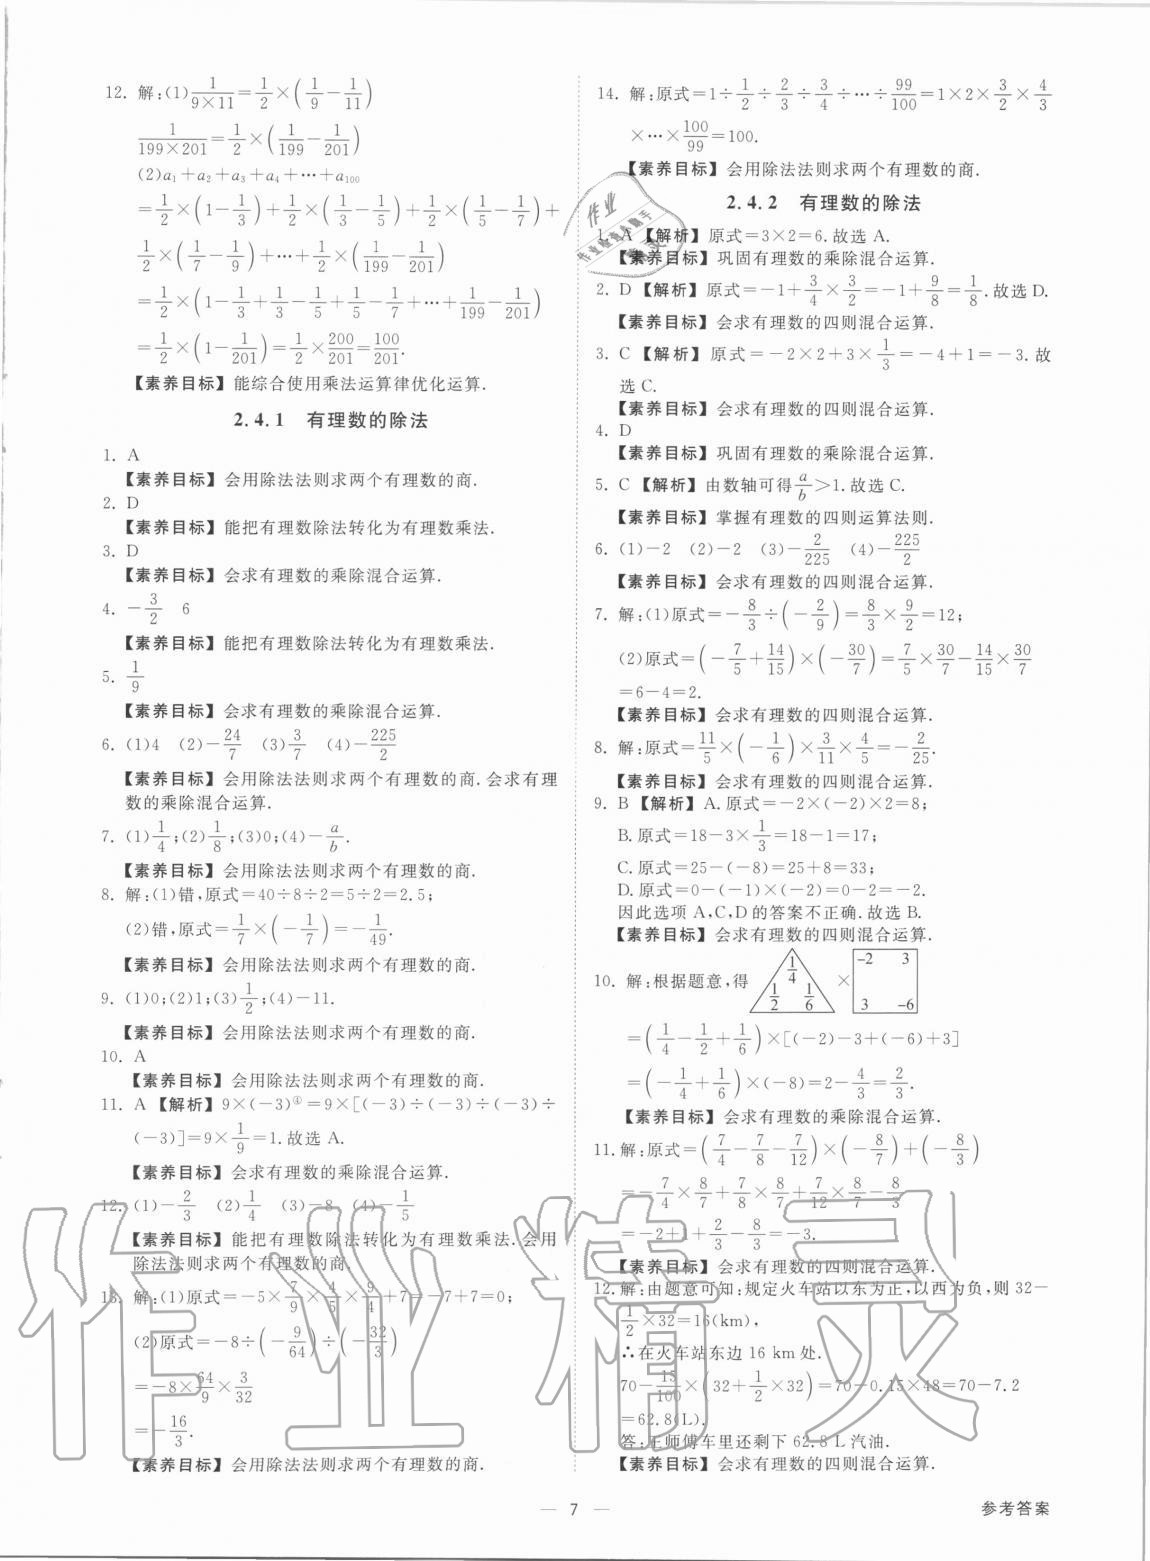 12. 解:(1)1/(9×11)=1/2×(1/9-1/11)
1/(199×201)=1/2×(1/199-1/201)
(2)a₁+a₂+a₃+a₄+…+a₁₀₀
=1/2×(1-1/3)+1/2×(1/3-1/5)+1/2×(1/5-1/7)+
1/2×(1/7-1/9)+…+1/2×(1/199-1/201)
=1/2×(1-1/3+1/3-1/5+1/5-1/7+…+1/199-1/201)
=1/2×(1-1/201)=1/2×200/201=100/201.
【素养目标】能综合使用乘法运算律优化运算.
2.4.1 有理数的除法
1. A
【素养目标】会用除法法则求两个有理数的商.
2. D
【素养目标】能把有理数除法转化为有理数乘法.
3. D
【素养目标】会求有理数的乘除混合运算.
4. -3/2 6
【素养目标】能把有理数除法转化为有理数乘法.
5. 1/9
【素养目标】会求有理数的乘除混合运算.
6. (1)4 (2)-24/7 (3)3/7 (4)-225/2
【素养目标】会用除法法则求两个有理数的商.会求有理
数的乘除混合运算.
7. (1)1/4;(2)1/8;(3)0;(4)-a/b.
【素养目标】会用除法法则求两个有理数的商.
8. 解:(1)错,原式=40÷8÷2=5÷2=2.5;
(2)错,原式=1/7×(-1/7)=-1/49.
【素养目标】会用除法法则求两个有理数的商.
9. (1)0;(2)1;(3)1/2;(4)-11.
【素养目标】会用除法法则求两个有理数的商.
10. A
【素养目标】会用除法法则求两个有理数的商.
11. A【解析】9×(-3)④=9×[(-3)÷(-3)÷(-3)÷
(-3)]=9×1/9=1.故选A.
【素养目标】会求有理数的乘除混合运算.
12. (1)-2/3 (2)1/4 (3)-8 (4)-1/5
【素养目标】能把有理数除法转化为有理数乘法.会用
除法法则求两个有理数的商.
13. 解:(1)原式=-5×7/9×4/5×9/4+7=-7+7=0;
(2)原式=-8÷(-9/64)÷(-32/3)
=-8×64/9×3/32
=-16/3.
【素养目标】会用除法法则求两个有理数的商.
14. 解:原式=1÷1/2÷2/3÷3/4÷…÷99/100=1×2×3/2×4/3
×…×100/99=100.
【素养目标】会用除法法则求两个有理数的商.
2.4.2 有理数的除法
1. A【解析】原式=3×2=6.故选A.
【素养目标】巩固有理数的乘除混合运算.
2. D【解析】原式=-1+3/4×3/2=-1+9/8=1/8.故选D.
【素养目标】会求有理数的四则混合运算.
3. C【解析】原式=-2×2+3×1/3=-4+1=-3.故
选C.
【素养目标】会求有理数的四则混合运算.
4. D
【素养目标】巩固有理数的乘除混合运算.
5. C【解析】由数轴可得a/b>1.故选C.
【素养目标】掌握有理数的四则运算法则.
6. (1)-2 (2)-2 (3)-2/225 (4)-225/2
【素养目标】会求有理数的四则混合运算.
7. 解:(1)原式=-8/3÷(-2/9)=8/3×9/2=12;
(2)原式=(-7/5+14/15)×(-30/7)=7/5×30/7-14/15×30/7
=6-4=2.
【素养目标】会求有理数的四则混合运算.
8. 解:原式=11/5×(-1/6)×3/11×4/5=-2/25.
【素养目标】会求有理数的四则混合运算.
9. B【解析】A.原式=-2×(-2)×2=8;
B.原式=18-3×1/3=18-1=17;
C.原式=25-(-8)=25+8=33;
D.原式=0-(-1)×(-2)=0-2=-2.
因此选项A,C,D的答案不正确.故选B.
【素养目标】会求有理数的四则混合运算.
10. 解:根据题意,得 1/4 1/2 1/6 × -2 3 3 -6
=(1/4-1/2+1/6)×[(-2)-3+(-6)+3]
=(-1/4+1/6)×(-8)=2-4/3=2/3.
【素养目标】会求有理数的乘除混合运算.
11. 解:原式=(7/4-7/8-7/12)×(-8/7)+(-8/3)
=-7/4×8/7+7/8×8/7+7/12×8/7-8/3
=-2+1+2/3-8/3=-3.
【素养目标】会求有理数的四则混合运算.
12. 解:由题意可知:规定火车站以东为正,以西为负,则32-
1/2×32=16(km),
∴在火车站东边16 km处.
70-15/100×(32+1/2×32)=70-0.15×48=70-7.2
=62.8(L).
答:王师傅车里还剩下62.8 L汽油.
【素养目标】会求有理数的四则混合运算.
— 7 —
参考答案
作业精灵